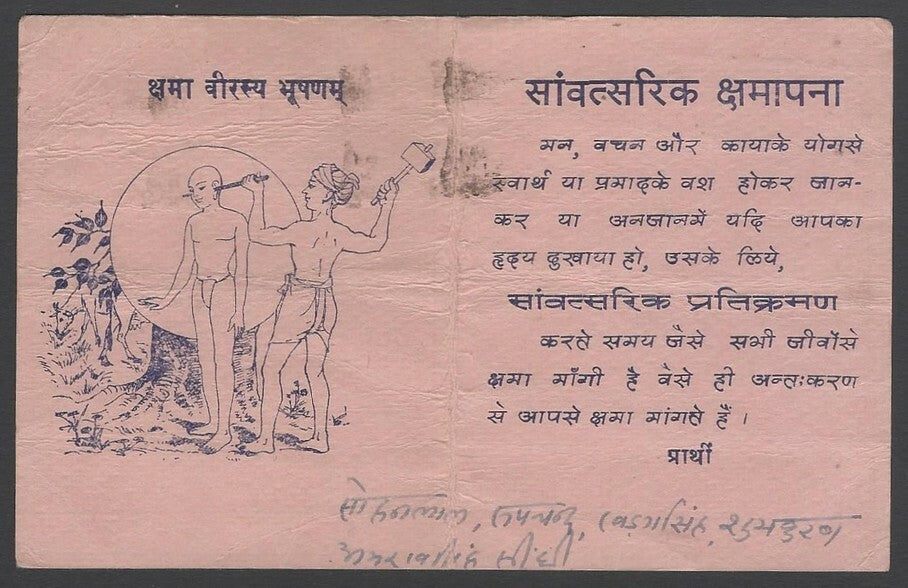 क्षमा वीरस्य भूषणम्
सांवत्सरिक क्षमापना
मन, वचन और कायाके योगसे
स्वार्थ या प्रमादके वश होकर जान-
कर या अनजानमें यदि आपका
हृदय दुखाया हो, उसके लिये,
सांवत्सरिक प्रतिक्रमण
करते समय जैसे सभी जीवोंसे
क्षमा माँगी है वैसे ही अन्तःकरण
से आपसे क्षमा मांगते हैं।
प्रार्थी
सोहनलाल, रूपचन्द,